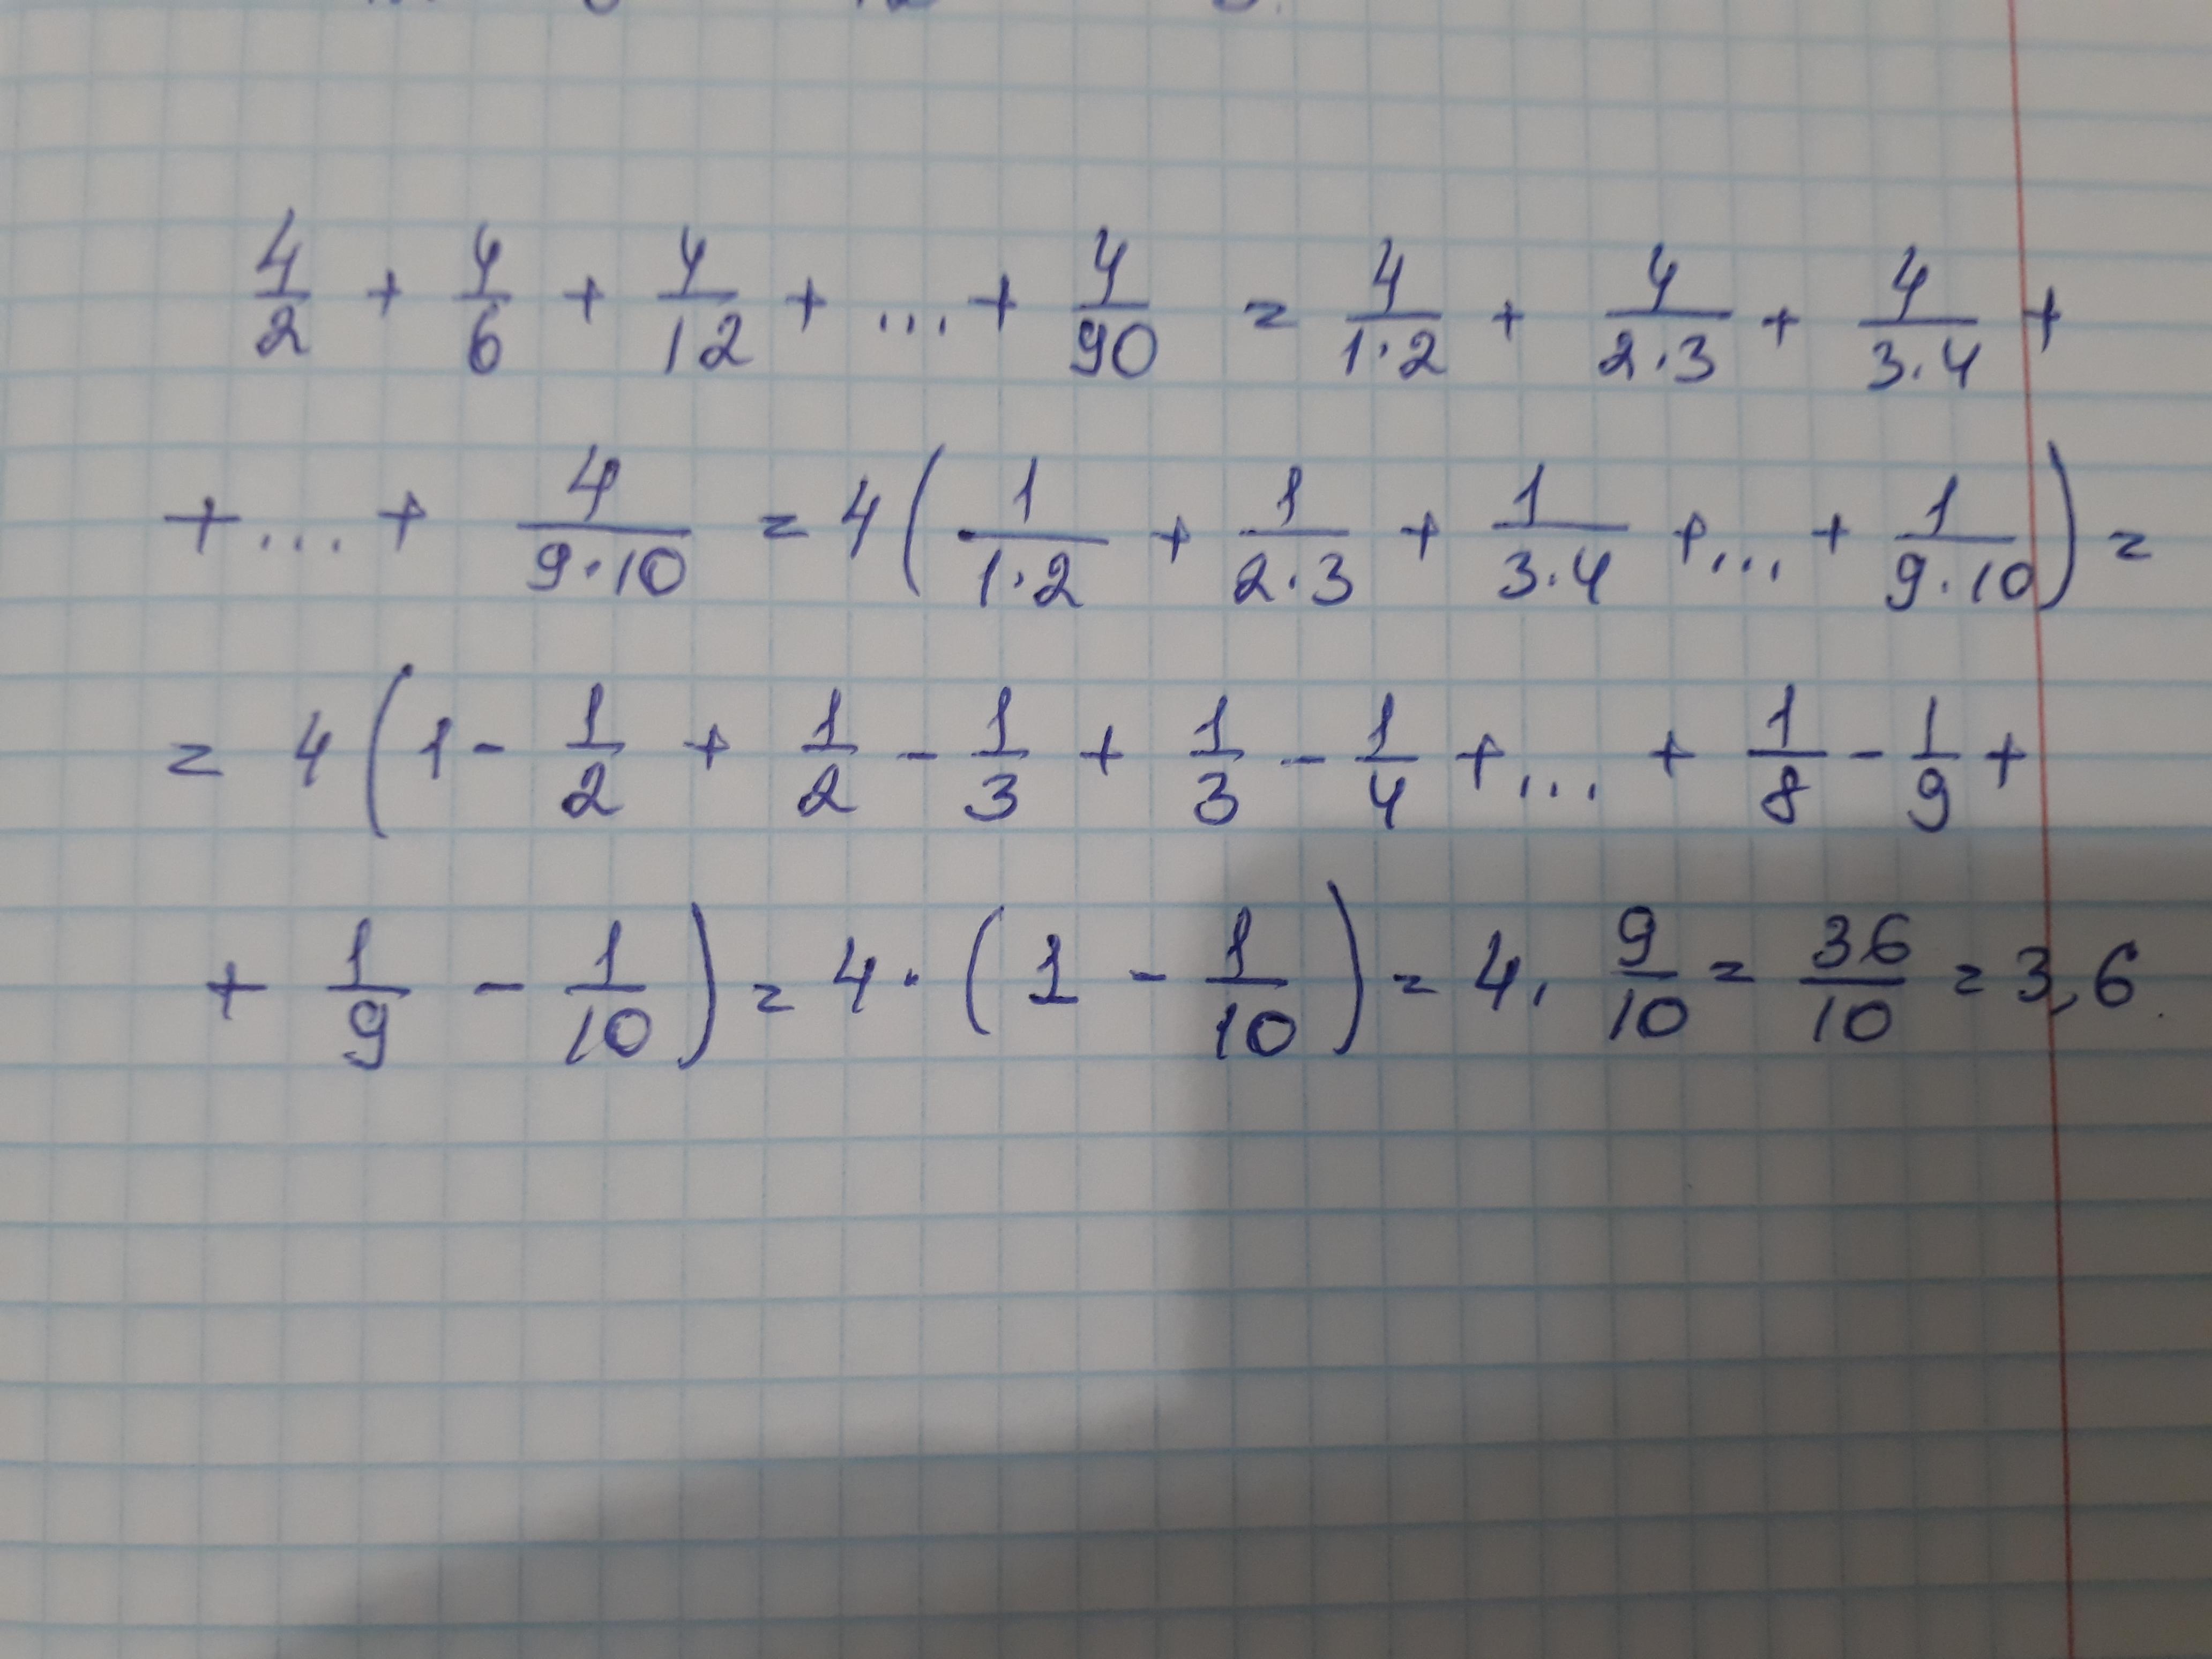 4/2 + 4/6 + 4/12 + ... + 4/90 = 4/1·2 + 4/2·3 + 4/3·4 +
+ ... + 4/9·10 = 4(1/1·2 + 1/2·3 + 1/3·4 + ... + 1/9·10) =
= 4(1 - 1/2 + 1/2 - 1/3 + 1/3 - 1/4 + ... + 1/8 - 1/9 +
+ 1/9 - 1/10) = 4 · (1 - 1/10) = 4 · 9/10 = 36/10 = 3,6.